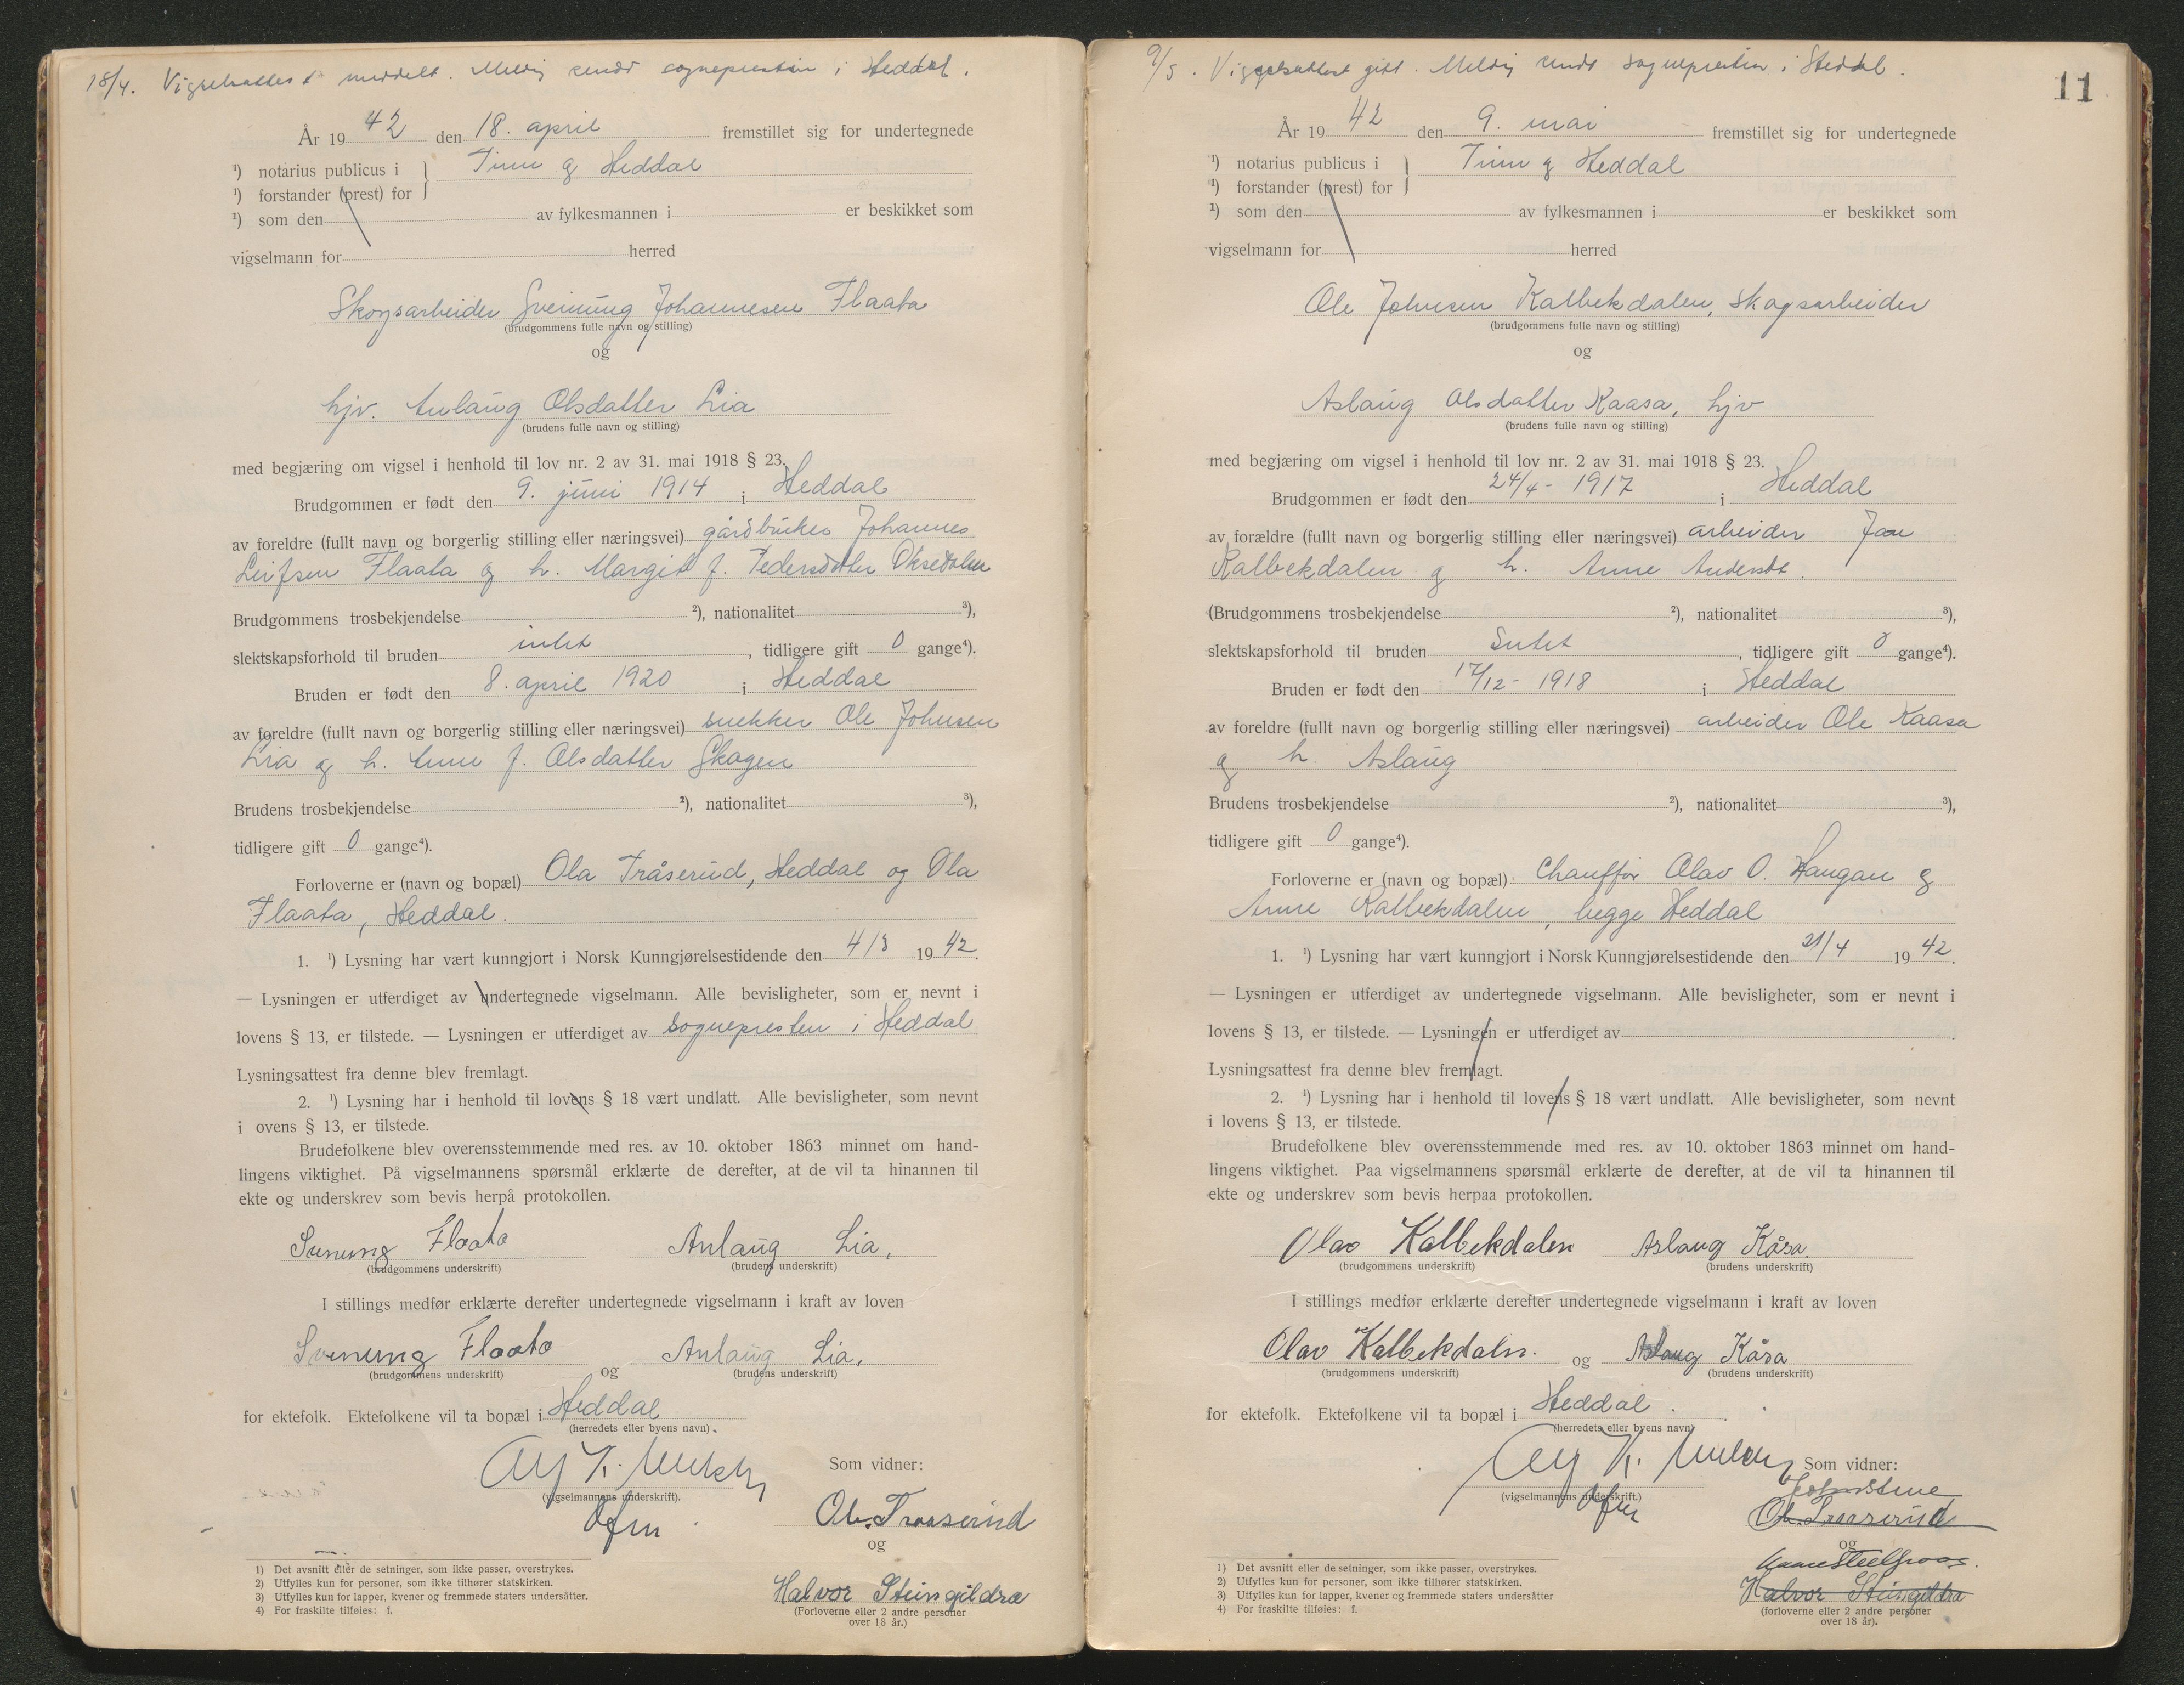 18/4. Vigselsattest meddelt. Melding sendt sognepresten i Heddal.
År 19 42 den 18. april fremstillet sig for undertegnede
¹) notarius publicus i } Tinn og Heddal
¹) forstander (prest) for
¹) som den av fylkesmannen i er beskikket som
vigselmann for herred
Skogsarbeider Sveinung Johannesen Flaata
(brudgommens fulle navn og stilling)
og
hjv. Anlaug Olsdatter Lia
(brudens fulle navn og stilling)
med begjæring om vigsel i henhold til lov nr. 2 av 31. mai 1918 § 23.
Brudgommen er født den 9. juni 1914 i Heddal
av foreldre (fullt navn og borgerlig stilling eller næringsvei) gårdbruker Johannes
Leifsen Flaata og h. Margit f. Pedersdatter Oksedalen
Brudgommens trosbekjendelse ²), nationalitet ³),
slektskapsforhold til bruden intet, tidligere gift 0 gange⁴).
Bruden er født den 8. april 1920 i Heddal
av foreldre (fullt navn og borgerlig stilling eller næringsvei) snekker Ole Johnsen
Lia og h. Anne f. Olsdatter Skogen
Brudens trosbekjendelse ²), nationalitet ³),
tidligere gift 0 gange⁴).
Forloverne er (navn og bopæl) Ola Tråserud, Heddal og Ola
Flaata, Heddal.
1. ¹) Lysning har vært kunngjort i Norsk Kunngjørelsestidende den 4/3 19 42.
— Lysningen er utferdiget av undertegnede vigselmann. Alle bevisligheter, som er nevnt i
lovens § 13, er tilstede. — Lysningen er utferdiget av sognepresten i Heddal
Lysningsattest fra denne blev fremlagt.
2. ¹) Lysning har i henhold til lovens § 18 vært undlatt. Alle bevisligheter, som nevnt
i ovens § 13, er tilstede.
Brudefolkene blev overensstemmende med res. av 10. oktober 1863 minnet om hand-
lingens viktighet. På vigselmannens spørsmål erklærte de derefter, at de vil ta hinannen til
ekte og underskrev som bevis herpå protokollen.
Svenung Flaata Anlaug Lia,
(brudgommens underskrift) (brudens underskrift)
I stillings medfør erklærte derefter undertegnede vigselmann i kraft av loven
Svenung Flaata og Anlaug Lia,
(brudgommens underskrift) (brudens underskrift)
for ektefolk. Ektefolkene vil ta bopæl i Heddal
(herredets eller byens navn).
Alf K.
Som vidner:
(vigselmannens underskrift).
Ol. Traaserud
og
Halvor Steingildra
(Forloverne eller 2 andre personer
over 18 år.)
1) Det avsnitt eller de setninger, som ikke passer, overstrykes.
2) Utfylles kun for personer, som ikke tilhører statskirken.
3) Utfylles kun for lapper, kvener og fremmede staters undersåtter.
4) For fraskilte tilføies: f.
9/5. Vigselsattest gitt. Melding sendt sognepresten i Heddal.
11
År 19 42 den 9. mai fremstillet sig for undertegnede
¹) notarius publicus i } Tinn og Heddal
¹) forstander (prest) for
¹) som den av fylkesmannen i er beskikket som
vigselmann for herred
Ole Johnsen Kalbekdalen, skogsarbeider
(brudgommens fulle navn og stilling)
og
Aslaug Olsdatter Kaasa, hjv
(brudens fulle navn og stilling)
med begjæring om vigsel i henhold til lov nr. 2 av 31. mai 1918 § 23.
Brudgommen er født den 24/4 - 1917 i Heddal
av forældre (fullt navn og borgerlig stilling eller næringsvei) arbeider Jon
Kalbekdalen og h. Anne Andersdt.
(Brudgommens trosbekjendelse ²), nationalitet ³),
slektskapsforhold til bruden Intet, tidligere gift 0 gange⁴).
Bruden er født den 17/12 - 1918 i Heddal
av foreldre (fullt navn og borgerlig stilling eller næringsvei) arbeider Ole Kaasa
og h. Aslaug
Brudens trosbekjendelse ²), nationalitet ³),
tidligere gift 0 gange⁴).
Forloverne er (navn og bopæl) Chauffør Olav O. Haugan og
Anne Kalbekdalen, begge Heddal
1. ¹) Lysning har vært kunngjort i Norsk Kunngjørelsestidende den 21/4 19 42.
— Lysningen er utferdiget av undertegnede vigselmann. Alle bevisligheter, som er nevnt i
lovens § 13, er tilstede. — Lysningen er utferdiget av
Lysningsattest fra denne blev fremlagt.
2. ¹) Lysning har i henhold til lovens § 18 vært undlatt. Alle bevisligheter, som nevnt
i lovens § 13, er tilstede.
Brudefolkene blev overensstemmende med res. av 10. oktober 1863 minnet om hand-
lingens viktighet. Paa vigselmannens spørsmål erklærte de derefter, at de vil ta hinannen til
ekte og underskrev som bevis herpaa protokollen.
Olav Kalbekdalen Aslaug Kåsa.
(brudgommens underskrift) (brudens underskrift)
I stillings medfør erklærte derefter undertegnede vigselmann i kraft av loven
Olav Kalbekdalen. og Aslaug Kåsa
(brudgommens underskrift) (brudens underskrift)
for ektefolk. Ektefolkene vil ta bopæl i Heddal.
(herredets eller byens navn)
Alf K.
Som vidner:
(vigselmannens underskrift.)
Ol. Traaserud
og
Halvor Steingildra
(forloverne eller 2 andre personer
over 18 år).
1) Det avsnitt eller de setninger, som ikke passer, overstrykes.
2) Utfylles kun for personer, som ikke tilhører statskirken.
3) Utfylles kun for lapper, kvener og fremmede staters undersåtter
4) For fraskilte tilføies: f.